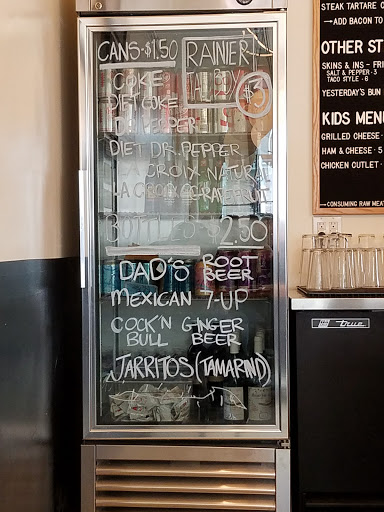 CANS·$1.50
RAINIER
TALLBOY
$3
COKE
DIET COKE
DR. PEPPER
DIET DR. PEPPER
LA CROIX NATURAL
LA CROIX GRAPEFRUIT
BOTTLES $2.50
DAD'S ROOT BEER
MEXICAN 7-UP
COCK'N BULL GINGER BEER
JARRITOS (TAMARIND)
STEAK TARTARE
→ADD BACON TO
OTHER ST
SKINS & INS - FRI
SALT & PEPPER · 3
TACO STYLE · 6
YESTERDAY'S BUN
KIDS MENU
GRILLED CHEESE ·
HAM & CHEESE · 5
CHICKEN CUTLET ·
→CONSUMING RAW MEAT
True